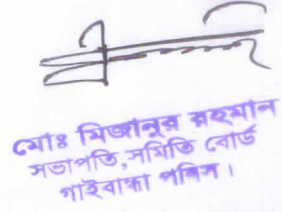 মোঃ মিজানুর রহমান
সভাপতি, সমিতি বোর্ড
গাইবান্ধা পবিস।